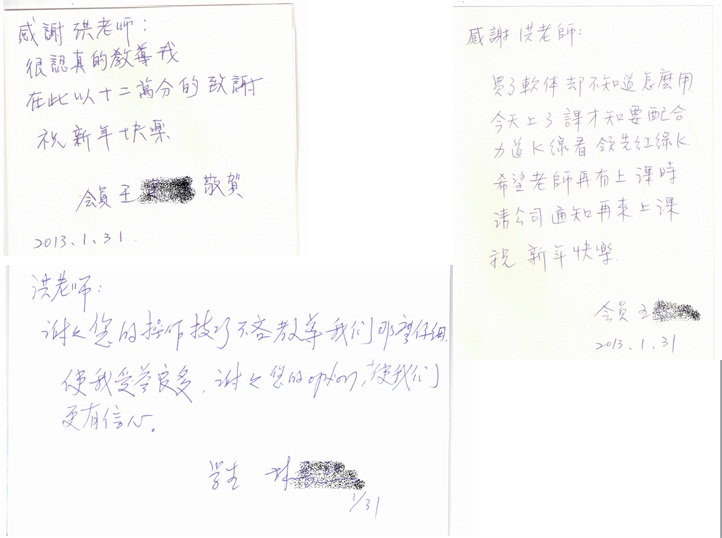 感謝 洪老师:
很認真的教導我
在此以十二萬分的致謝
祝新年快樂
会員 王 敬賀
2013.1.31
感謝 洪老師:
買了軟体却不知道怎麼用
今天上了課才知要配合
力道K線看領先紅綠K.
希望老師再有上課時
請公司通知再來上課
祝 新年快樂.
会員 王
2013.1.31
洪老师:
谢々您的操作技巧不吝教導我们 仔细.
使我受益良多. 谢々您的option, 使我们
更有信心。
学生
1/31